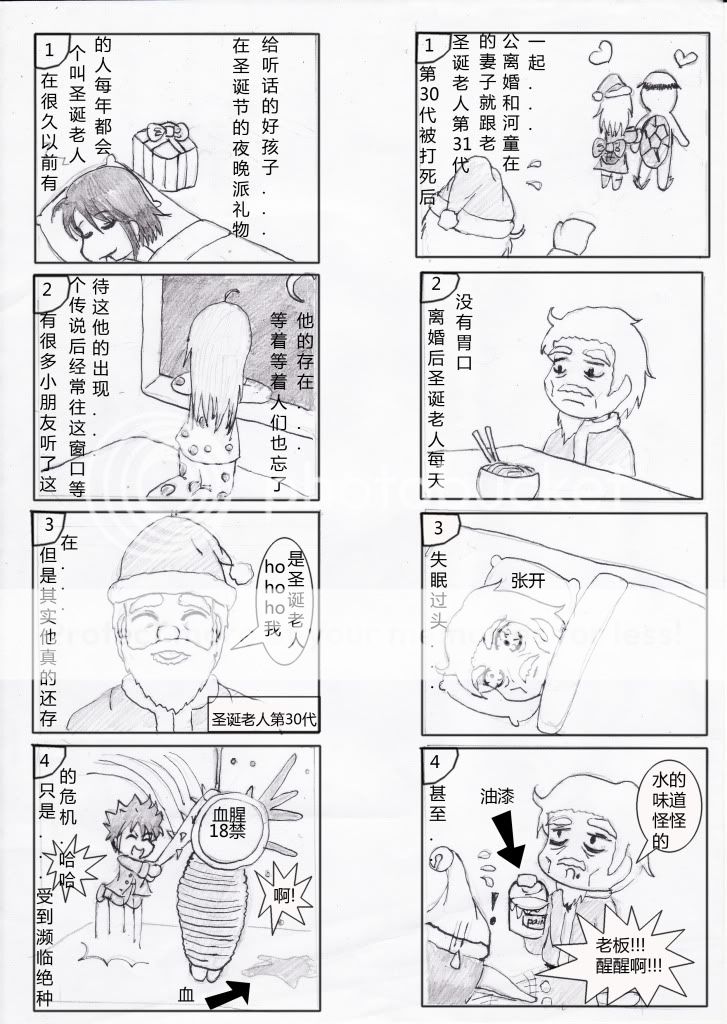 1
在很久以前有
个叫圣诞老人
的人每年都会
在圣诞节的夜晚派礼物
给听话的好孩子...
2
有很多小朋友听了这
个传说后经常往这窗口等
待这他的出现...
等着等着人们也忘了
他的存在....
3
但是其实他真的还存
在....
ho ho ho 我
是圣诞老人
圣诞老人第30代
4
只是....受到濒临绝种
的危机
哈哈
血腥
18禁
啊!
血
1
第30代被打死后
圣诞老人第31代
的妻子就跟老
公离婚和河童在
一起....
2
离婚后圣诞老人每天
没有胃口
3
失眠过头....
张开
4
甚至..
油漆
水的
味道
怪怪
的
paint
老板!!!
醒醒啊!!!
photobucket
Protect more of your memories for less!